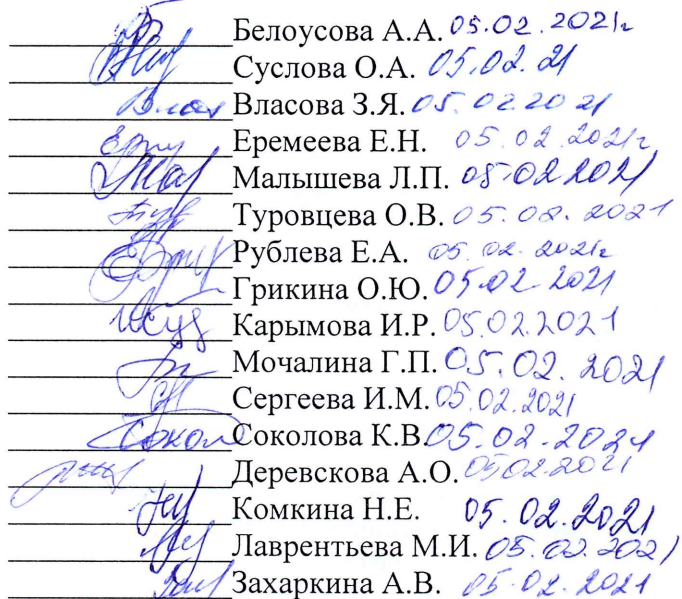 Белоусова А.А. 05.02.2021г
Суслова О.А. 05.02.21
Власова З.Я. 05.02.2021
Еремеева Е.Н. 05.02.2021г
Малышева Л.П. 05.02.2021
Туровцева О.В. 05.02.2021
Рублева Е.А. 05.02.2021г
Грикина О.Ю. 05.02.2021
Карымова И.Р. 05.02.2021
Мочалина Г.П. 05.02.2021
Сергеева И.М. 05.02.2021
Сокол Соколова К.В. 05.02.2021
Деревскова А.О. 05.02.2021
Комкина Н.Е. 05.02.2021
Лаврентьева М.И. 05.02.2021
Захаркина А.В. 05.02.2021